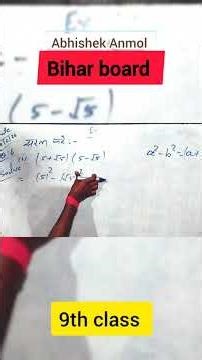 Ex
Abhishek Anmol
Bihar board
(5-√5)
सरल करें:-
(5+√5)(5-√5)
= (5)² - (√5)²
a²-b²=(a+
9th class